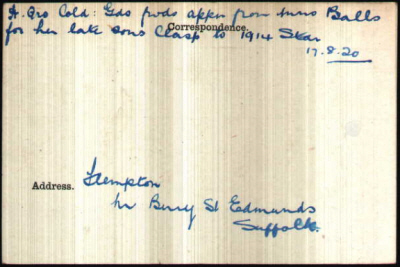 H. Gro Cold: Gds fwds appn from Mrs Balls
Correspondence.
for her late sons Clasp to 1914 Star
17.8.20
Address. Flempton
nr Bury St Edmunds
Suffolk.